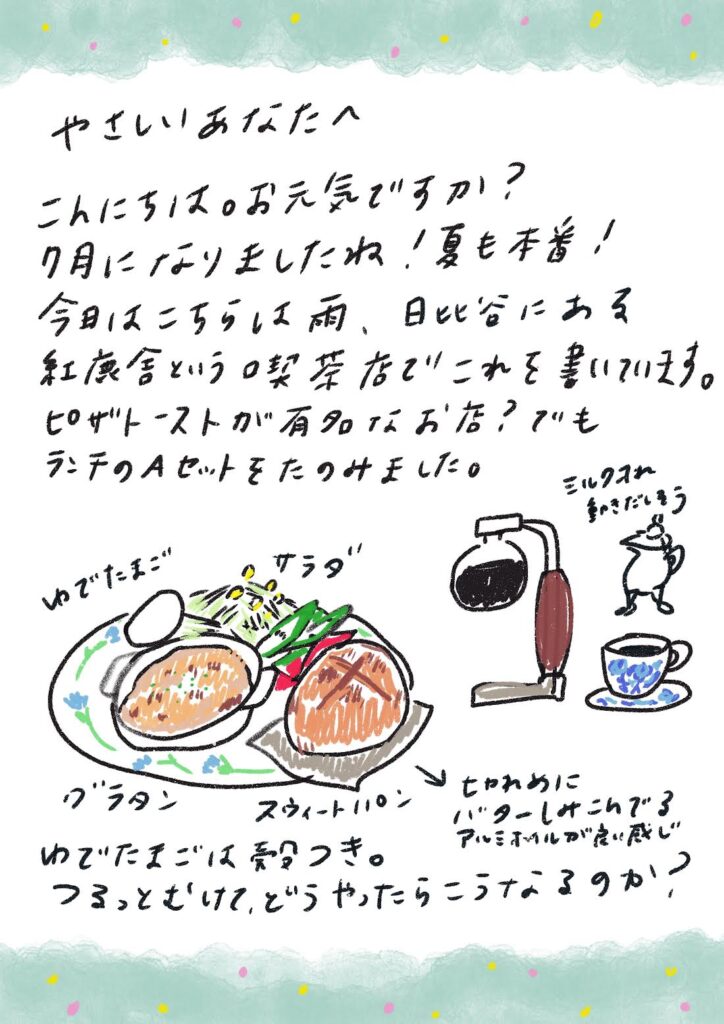 やさしいあなたへ
こんにちは。お元気ですか?
7月になりましたね!夏も本番!
今日はこちらは雨、日比谷にある
紅鹿舎という喫茶店でこれを書いています。
ピザトーストが有名なお店?でも
ランチのAセットをたのみました。
ミルク入れ
動きだしそう
ゆでたまご
サラダ
グラタン
スウィートパン
→ 切れめに
バターしみこんでる
アルミホイルが良い感じ
ゆでたまごは殻つき。
つるっとむけて、どうやったらこうなるのか?